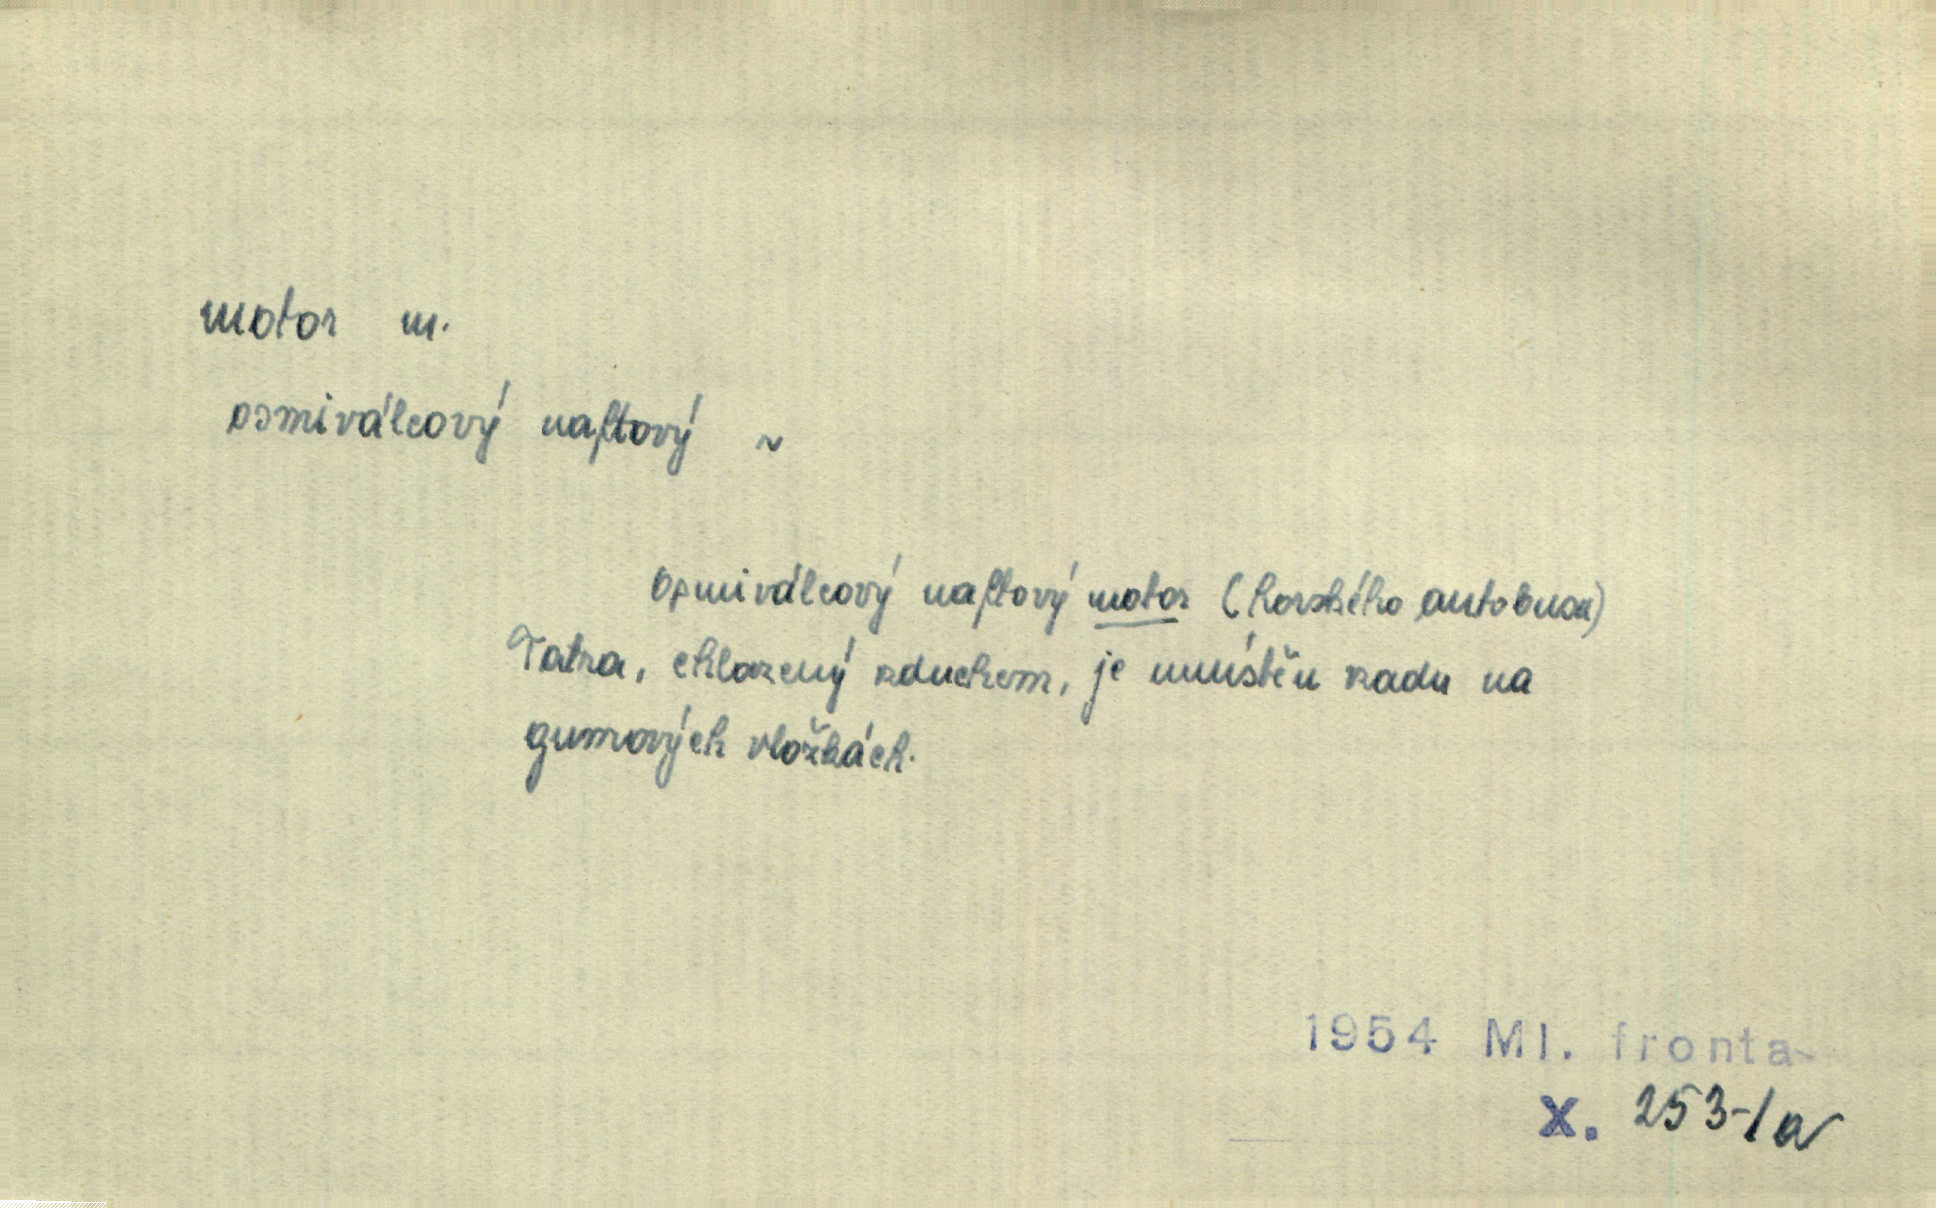 motor m.
osmiválcový naftový ~
Osmiválcový naftový motor (horského autobusu)
Tatra, chlazený vzduchem, je umístěn vzadu na
gumových vložkách.
1954 Ml. fronta
X. 253-1a